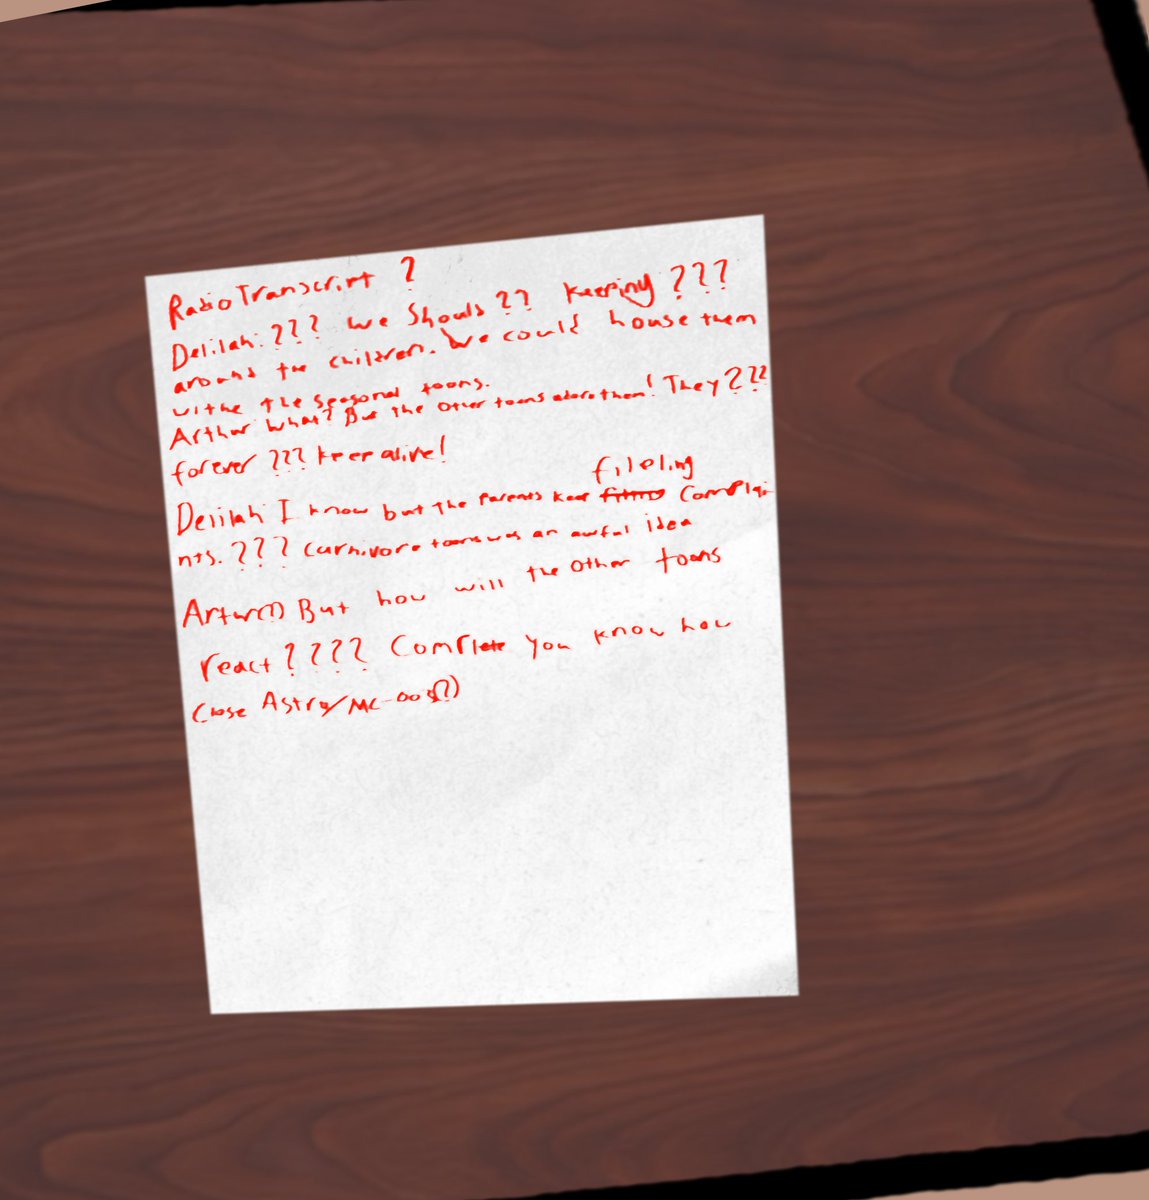 Radio Transcript ?
Delilah: ??? We Should ?? keeping ???
around the children. We could house them
withe the seasonal toons.
Arthur what? But the other toons adore them! They ???
forever ??? keep alive!
fileling
Delilah I know but the Parents keep filling Complai
nts. ??? Carnivore toons was an awful idea
Artur(?) But how will the other toons
react ???? Complete you know how
close Astro/MC-008(?)